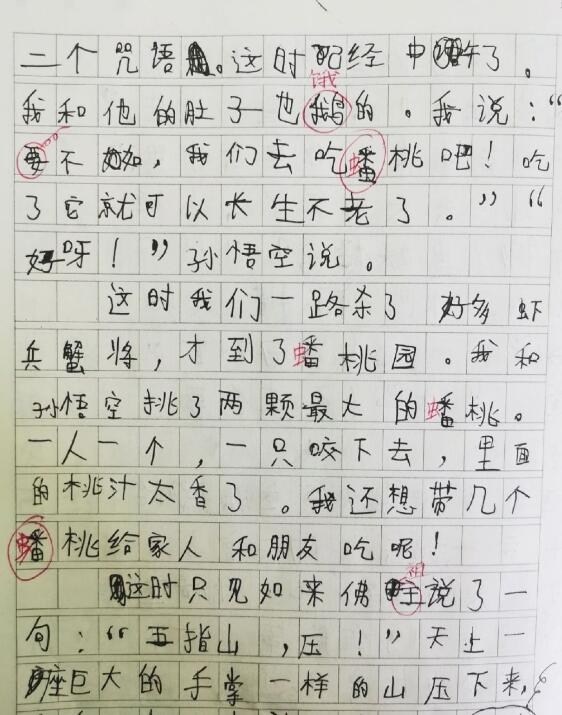 二个咒语。这时已经中午了。
饿
我和他的肚子也鹅的。我说：“
要不如，我们去吃蟠桃吧！吃
了它就可以长生不老了。”“
好呀！”孙悟空说。
这时我们一路杀了好多虾
兵蟹将，才到了蟠桃园。我和
孙悟空挑了两颗最大的蟠桃。
一人一个，一只咬下去，里面
的桃汁太香了。我还想带几个
蟠桃给家人和朋友吃呢！
祖
这时只见如来佛主说了一
句：“五指山，压！”天上一
座巨大的手掌一样的山压下来，